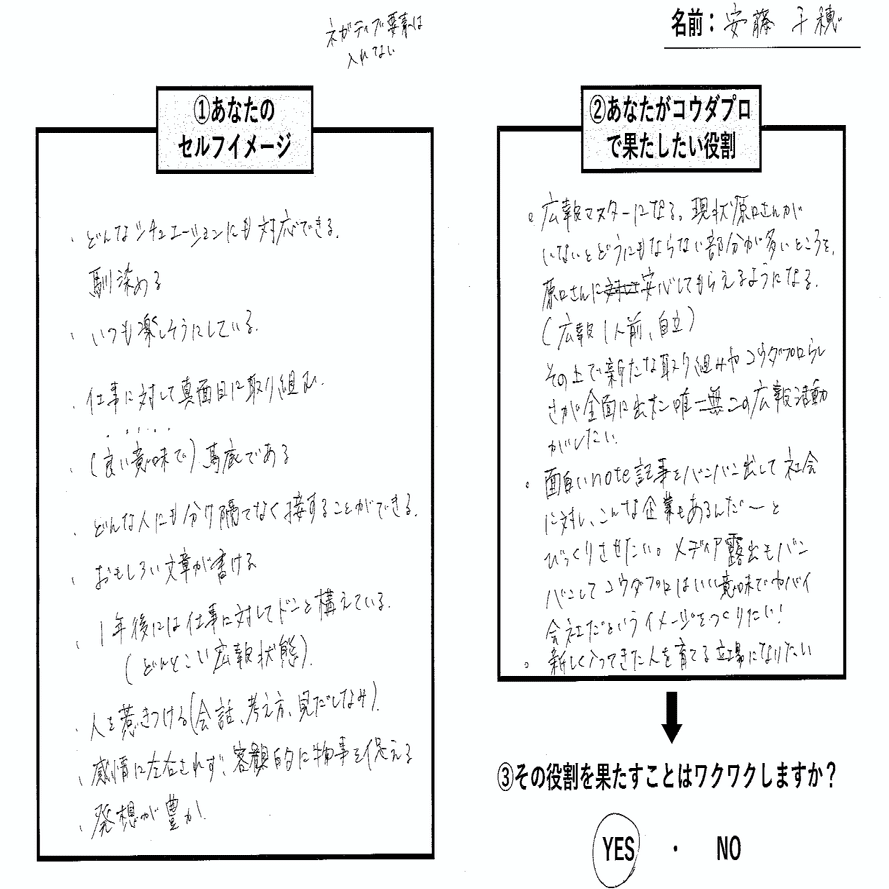 ネガティブ要素は
入れない
名前：安藤 千穂
①あなたの
セルフイメージ
・どんなシチュエーションにも対応できる。
馴染める
・いつも楽しそうにしている。
・仕事に対して真面目に取り組む。
・(良い意味で)馬鹿である
・どんな人にも分け隔てなく接することができる。
・おもしろい文章が書ける
・1年後には仕事に対してドンと構えている。
(どんとこい広報状態)。
・人を惹きつける(会話、考え方、見だしなみ)。
・感情に左右されず、客観的に物事を捉える
・発想が豊か。
②あなたがコウダプロ
で果たしたい役割
・広報マスターになる。現状原口さんが
いないとどうにもならない部分が多いところを、
原口さんに安心してもらえるようになる。
(広報1人前、自立)
その上で新たな取り組みやコウダプロらし
さが全面に出た唯一無二の広報活動
がしたい。
・面白いnote記事をバンバン出して社会
に対し、こんな企業もあるんだ〜と
びっくりさせたい。メディア露出もバン
バンしてコウダプロはいい意味でヤバイ
会社だというイメージをつくりたい！
・新しく入ってきた人を育てる立場になりたい
③その役割を果たすことはワクワクしますか？
YES ・ NO